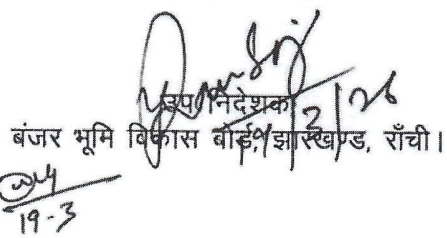 उप निदेशक
बंजर भूमि विकास बोर्ड, झारखण्ड, राँची।
19-3